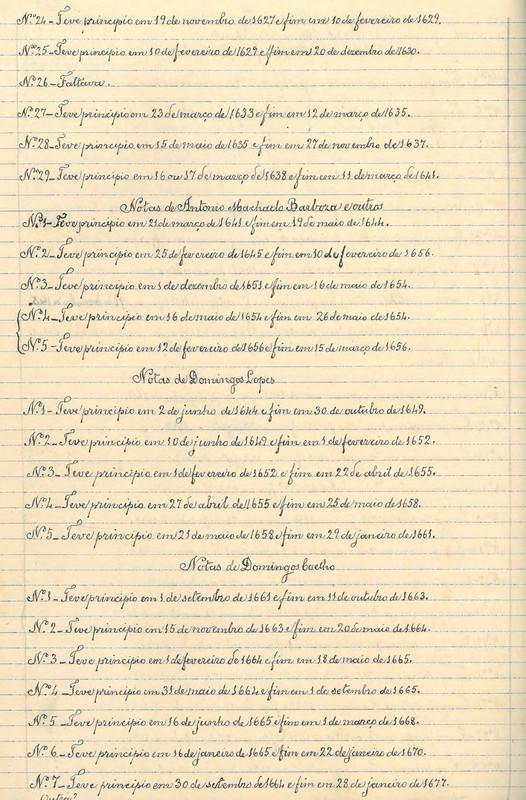 Nº 24 - Teve principio em 19 de novembro de 1627 e fim em 10 de fevereiro de 1629.
Nº 25 - Teve principio em 10 de fevereiro de 1629 e fim em 20 de dezembro de 1630.
Nº 26 - Faltava.
Nº 27 - Teve principio em 23 de março de 1633 e fim em 12 de março de 1635.
Nº 28 - Teve principio em 15 de maio de 1635 e fim em 27 de novembro de 1637.
Nº 29 - Teve principio em 16 ou 17 de março de 1638 e fim em 11 de março de 1641.
Notas de Antonio Machado Barboza e outros
Nº 1 - Teve principio em 21 de março de 1641 e fim em 19 de maio de 1644.
Nº 2 - Teve principio em 25 de fevereiro de 1645 e fim em 10 de fevereiro de 1656.
Nº 3 - Teve principio em 1 de dezembro de 1651 e fim em 16 de maio de 1654.
Nº 4 - Teve principio em 16 de maio de 1654 e fim em 26 de maio de 1654.
Nº 5 - Teve principio em 12 de fevereiro de 1656 e fim em 15 de março de 1656.
Notas de Domingos Lopes
Nº 1 - Teve principio em 2 de junho de 1644 e fim em 30 de outubro de 1649.
Nº 2 - Teve principio em 10 de junho de 1649 e fim em 1 de fevereiro de 1652.
Nº 3 - Teve principio em 1 de fevereiro de 1652 e fim em 22 de abril de 1655.
Nº 4 - Teve principio em 27 de abril de 1655 e fim em 25 de maio de 1658.
Nº 5 - Teve principio em 21 de maio de 1658 e fim em 29 de janeiro de 1661.
Notas de Domingos Coelho
Nº 1 - Teve principio em 1 de setembro de 1661 e fim em 11 de outubro de 1663.
Nº 2 - Teve principio em 15 de novembro de 1663 e fim em 20 de maio de 1664.
Nº 3 - Teve principio em 1 de fevereiro de 1664 e fim em 18 de maio de 1665.
Nº 4 - Teve principio em 31 de maio de 1664 e fim em 1 de setembro de 1665.
Nº 5 - Teve principio em 16 de junho de 1665 e fim em 1 de março de 1668.
Nº 6 - Teve principio em 16 de janeiro de 1665 e fim em 22 de janeiro de 1670.
Nº 7 - Teve principio em 30 de setembro de 1664 e fim em 28 de janeiro de 1677.